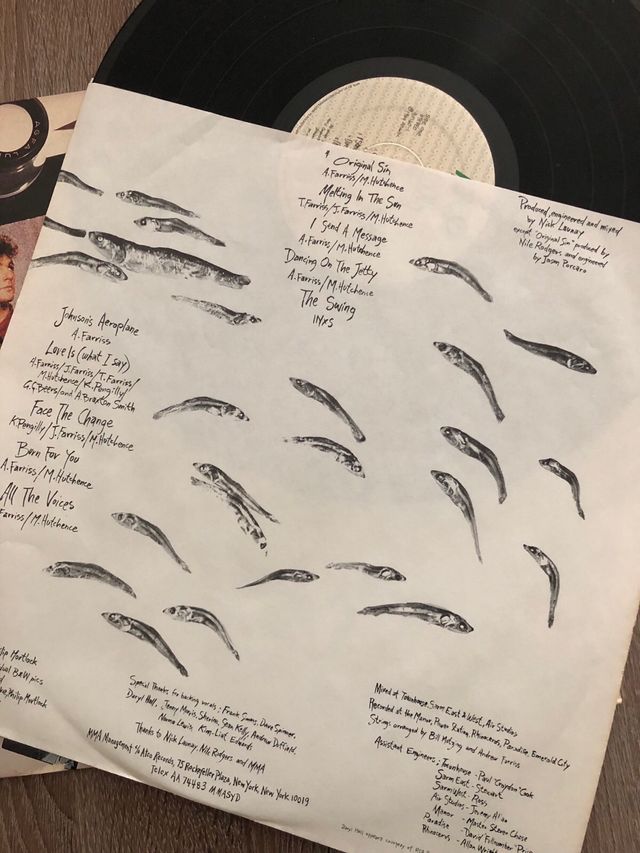 AGFA LU
Original Sin
A. Farriss/M. Hutchence
Melting In The Sun
T. Farriss/J. Farriss/M. Hutchence
I Send A Message
A. Farriss/M. Hutchence
Dancing On The Jetty
A. Farriss/M. Hutchence
The Swing
INXS
Produced, engineered and mixed
by Nick Launay
except "Original Sin" produced by
Nile Rodgers and engineered
by Jason Corsaro
Johnson's Aeroplane
A. Farriss
Love Is (What I Say)
A. Farriss/J. Farriss/T. Farriss/
M. Hutchence/K. Pengilly/
G.G. Beers/and A. Braxton Smith
Face The Change
K. Pengilly/J. Farriss/M. Hutchence
Burn For You
A. Farriss/M. Hutchence
All The Voices
Farriss/M. Hutchence
Mortlock
B&W pics
Philip Mortlock
Special Thanks for backing vocals: Frank Simms, Dave Spinner,
Daryl Hall, Jenny Morris, Sherine, Sean Kelly, Andrew Duffield,
Nana Lewin Kim-Lisl Edwards
Thanks to Nick Launay, Nile Rodgers and MMA
MMA Management % Atco Records, 75 Rockefeller Plaza, New York, New York 10019
Telex AA 74483 MMASYD
Mixed at Townhouse, Sarm East & West, Air Studios
Recorded at the Manor, Power Station, Rhinoceros, Paradise, Emerald City
Strings arranged by Bill Motzing and Andrew Farriss
Assistant Engineers; Townhouse - Paul 'Croydon' Cook
Sarm East - Stewart
Sarm West - Ross
Air Studios - Jeremy Allan
Manor - Master Steven Chase
Paradise - David
Rhinoceros - Allan Wright
Daryl Hall appears courtesy of RCA